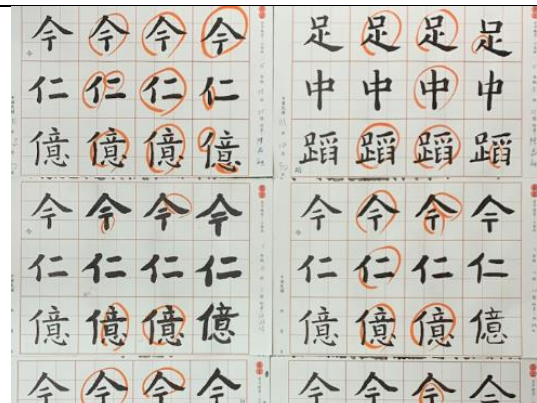 今 今 今 今
仁 仁 仁 仁
億 億 億 億
足 足 足 足
中 中 中 中
蹈 蹈 蹈 蹈
今 今 今 今
仁 仁 仁 仁
億 億 億 億
今 今 今 今
仁 仁 仁 仁
億 億 億 億
今 今 今 今
今 今 今 今